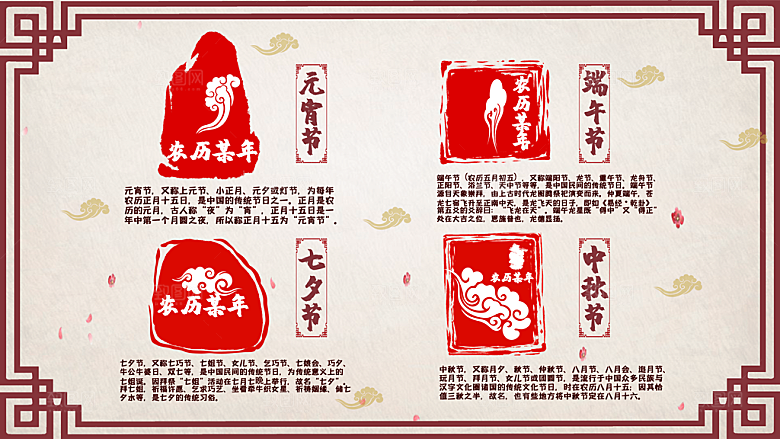 农历某年
元宵节
元宵节，又称上元节、小正月、元夕或灯节，为每年
农历正月十五日，是中国的传统节日之一。正月是农
历的元月，古人称“夜”为“宵”，正月十五日是一
年中第一个月圆之夜，所以称正月十五为“元宵节”。
农历某年
端午节
端午节（农历五月初五），又称端阳节、龙节、重午节、龙舟节、
正阳节、浴兰节、天中节等等，是中国民间的传统节日。端午节
源自天象崇拜，由上古时代龙图腾祭祀演变而来。仲夏端午，苍
龙七宿飞升至正南中天，是龙飞天的日子，即如《易经·乾卦》
第五爻的爻辞曰：“飞龙在天”。端午龙星既“得中”又“得正”
处在大吉之位，
农历某年
七夕节
七夕节，又称七巧节、七姐节、女儿节、乞巧节、七娘会、巧夕、
牛公牛婆日、双七等，是中国民间的传统节日，为传统意义上的
七姐诞。因拜祭“七姐”活动在七月七晚上举行，故名“七夕”。
拜七姐，祈福许愿、乞求巧艺、坐看牵牛织女星、祈祷姻缘、储七
夕水等，是七夕的传统习俗。
农历某年
中秋节
中秋节，又称月夕、秋节、仲秋节、八月节、八月会、追月节、
玩月节、拜月节、女儿节或团圆节，是流行于中国众多民族与
汉字文化圈诸国的传统文化节日，时在农历八月十五；因其恰
值三秋之半，故名，也有些地方将中秋节定在八月十六。